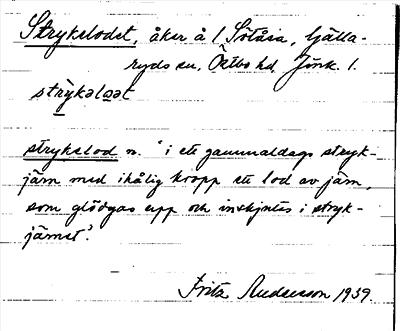 Strykelodet, åker å 1 Sotåsa, Gälla-
ryds sn, Östbo hd, Jönk. l.
strykəlɷət
strykelod n. "i ett gammaldags stryk-
järn med ihålig kropp ett lod av järn,
som glödgas upp och inskjutes i stryk-
järnet".
Fritz Andersson 1939.